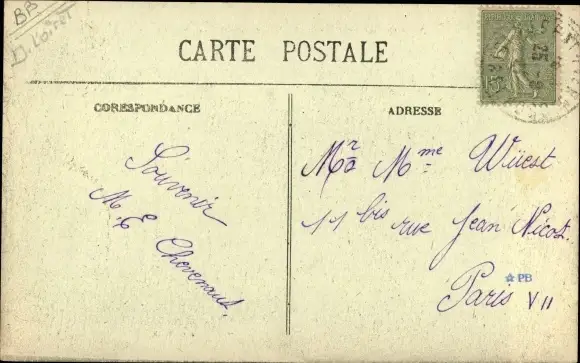 BB
D. Loiret
CARTE POSTALE
CORESPONDANCE
ADRESSE
Souvenir
M. E. Chevenaud
Mr & Mme Wüest
11 bis rue Jean Nicot.
Paris VII
PB
15
25